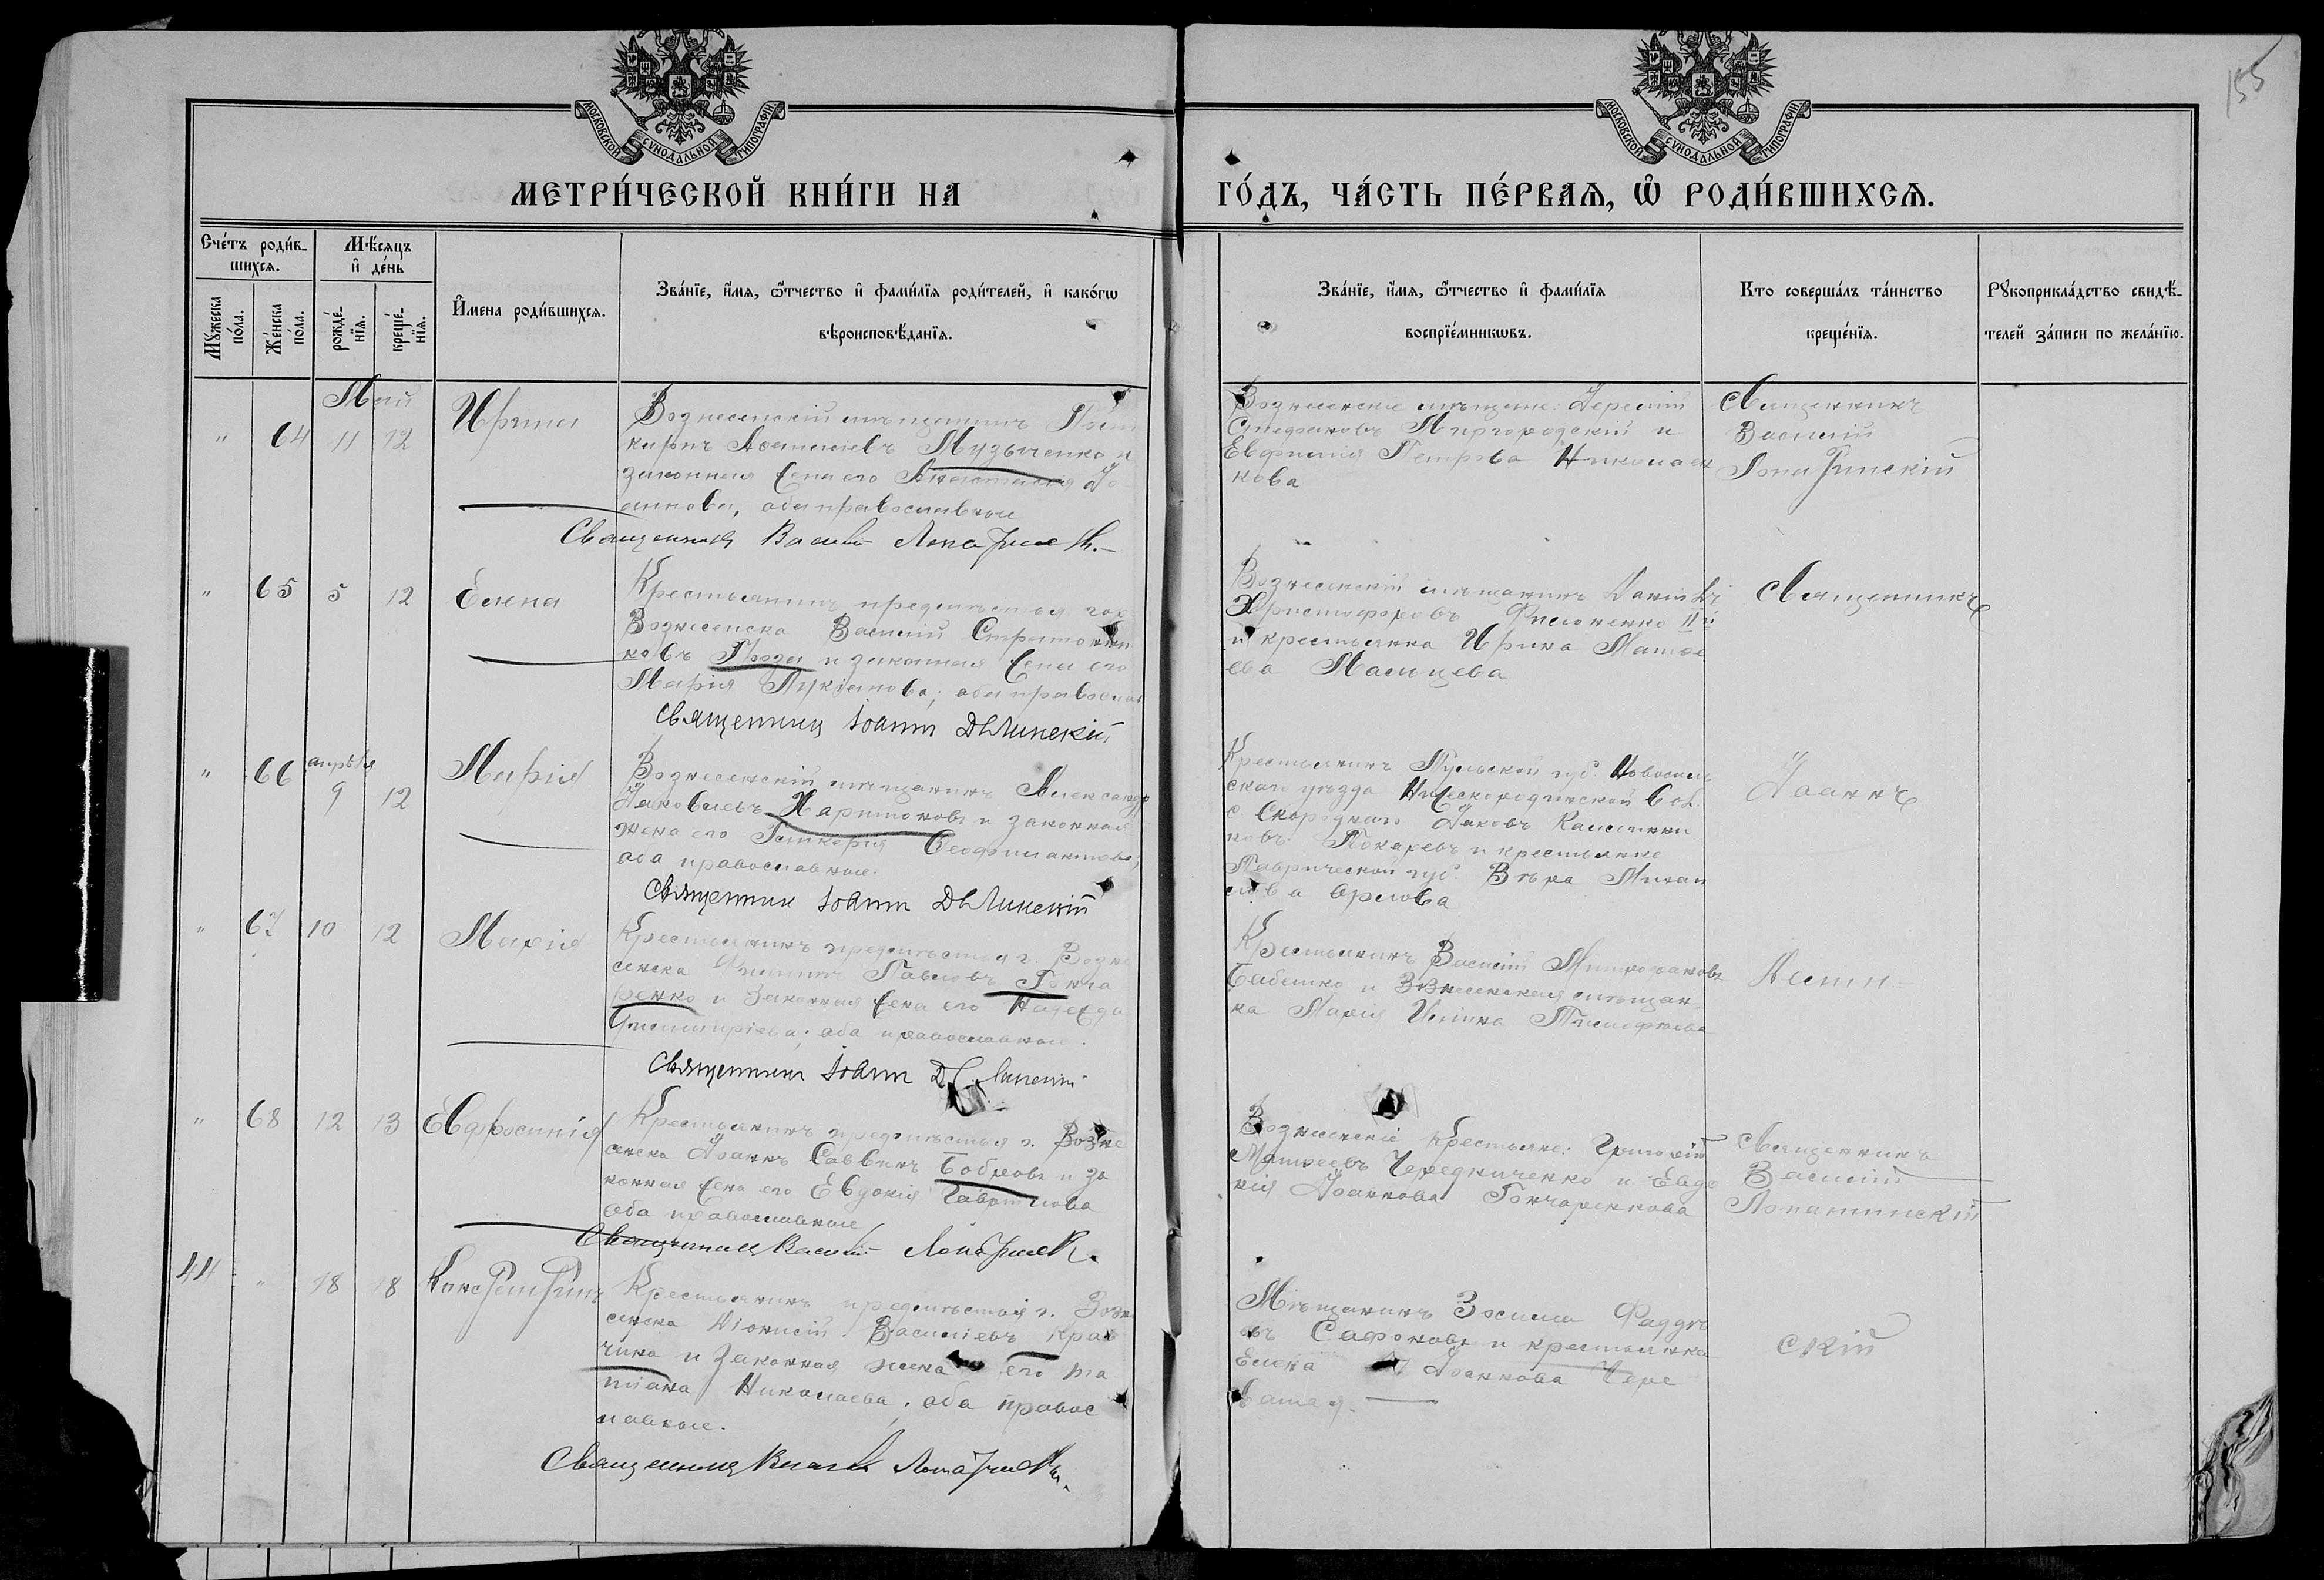 155
МОСКОВСКОЙ СУНОДАЛЬНОЙ ТИПОГРАФІИ
МОСКОВСКОЙ СУНОДАЛЬНОЙ ТИПОГРАФІИ
МЕТРИ́ЧЕСКОЙ КНИ́ГИ НА
ГО́ДЪ, ЧА́СТЬ ПЕ́РВАѦ, Ѡ҆ РОДИ́ВШИХСѦ.
Сче́тъ роди́в-
шихсѧ.
Мꙋ́жеска
по́ла.
Же́нска
по́ла.
Мѣ́сѧцъ
и҆ де́нь
рожде́-
нїѧ.
креще́-
нїѧ.
И҆мена роди́вшихсѧ.
Зва́нїе, и҆́мѧ, ѻ҆́тчество и҆ фами́лїѧ роди́телей, и҆ како́гѡ
вѣроисповѣ́данїѧ.
Зва́нїе, и҆́мѧ, ѻ҆́тчество и҆ фами́лїѧ
воспрїе́мникѡвъ.
Кто соверша́лъ та́инство
креще́нїѧ.
Рꙋкоприкла́дство свидѣ́-
телей за́писи по жела́нїю.
Май
" 64 11 12 Ирина
Вознесенскій мѣщанинъ
Музыченко и
законная жена его Анастасія Іо
аннова, оба православные
Священникъ Василій Лопатинскій
Вознесенскіе мѣщане: Іеремій
Стефановъ Миргородскій и
Евфимія Петрова Николаен
кова
Священникъ
Василій
Лопатинскій
" 65 5 12 Елена
Крестьянинъ предмѣстья гор
Вознесенска Василій Стратони
ковъ Гроза и законная жена его
Марія Лукіанова; оба православ
Священникъ Іоаннъ Дѣлинскій
Вознесенскій мѣщанинъ Даніилъ
Христофоровъ Филоненко II й
и крестьянка Ирина Матѳе
ева Мальцева
Священникъ
апрѣля
" 66 9 12 Марія
Вознесенскій мѣщанинъ Александръ
Іаковлевъ Харитоновъ и законная
жена его Гликерія Ѳеофилактова,
оба православные.
Священник Іоаннъ Дѣлинскій
Крестьянинъ Тульской губ. Новосиль
скаго уѣзда вол.
с. Скороднаго Іаковъ Каллинни
ковъ Токаревъ и крестьянка
Таврической губ. Вѣра Михаи
лова Орлова
Іоаннъ
" 67 10 12 Марія
Крестьянинъ предмѣстья г. Возне
сенска Филиппъ Павловъ Гонча
ренко и законная жена его Надежда
Димитріева; оба православные.
Священникъ Іоаннъ Дѣлинскій
Крестьянинъ Василій Митрофановъ
Бабенко и Вознесенская мѣщан
ка Марія Тимофеева
Дѣлин-
" 68 12 13 Евфросинія
Крестьянинъ предмѣстья г. Возне
сенска Іоаннъ Саввинъ Бобровъ и за
конная жена его Евдокія Гаврилова
оба православные
Священникъ Василій Лопатинскій.
Вознесенскіе крестьяне: Григорій
Матѳеевъ Чередниченко и Евдо
кія Іоаннова Гончаренкова
Священникъ
Василій
Лопатинскій
44 " 18 18 Константинъ
Крестьянинъ предмѣстья г. Возне
сенска Діонисій Василіевъ Крав
чина и законная жена его Та
тіана Николаева, оба правос
лавные.
Священникъ Василій Лопатинскій.
Мѣщанинъ Зосима Фаддѣ
въ Сафоновъ и крестьянка
Елена Іоаннова Чере
ватая.
скій